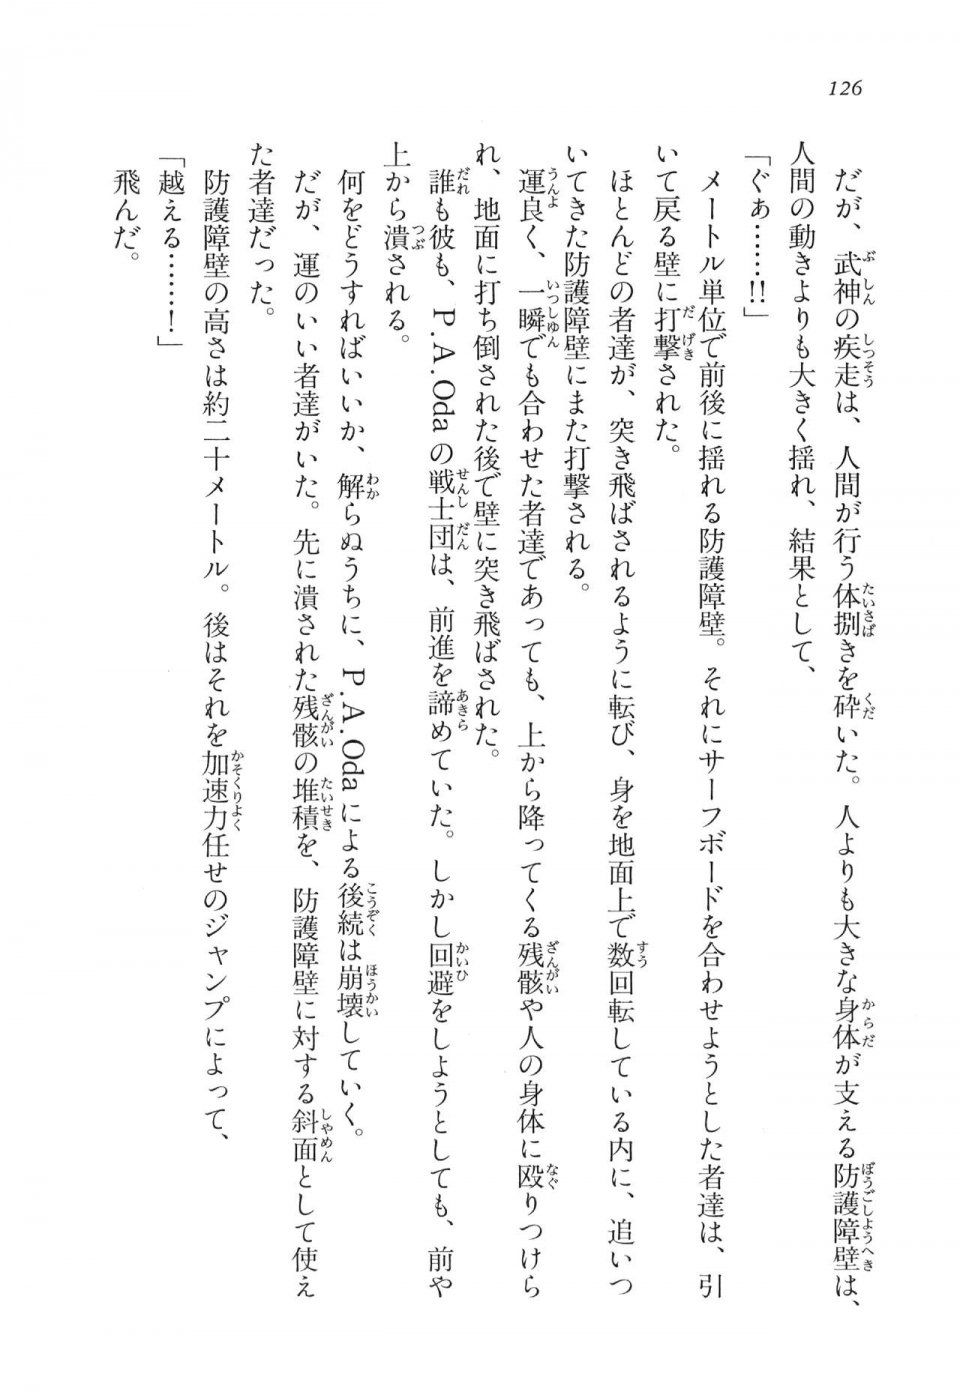 126
だが、武神の疾走は、人間が行う体捌きを砕いた。人よりも大きな身体が支える防護障壁は、
人間の動きよりも大きく揺れ、結果として、
「ぐぁ……!!」
メートル単位で前後に揺れる防護障壁。それにサーフボードを合わせようとした者達は、引
いて戻る壁に打撃された。
ほとんどの者達が、突き飛ばされるように転び、身を地面上で数回転している内に、追いつ
いてきた防護障壁にまた打撃される。
運良く、一瞬でも合わせた者達であっても、上から降ってくる残骸や人の身体に殴りつけら
れ、地面に打ち倒された後で壁に突き飛ばされた。
誰も彼も、P.A.Odaの戦士団は、前進を諦めていた。しかし回避をしようとしても、前や
上から潰される。
何をどうすればいいか、解らぬうちに、P.A.Odaによる後続は崩壊していく。
だが、運のいい者達がいた。先に潰された残骸の堆積を、防護障壁に対する斜面として使え
た者達だった。
防護障壁の高さは約二十メートル。後はそれを加速力任せのジャンプによって、
「越える……！」
飛んだ。